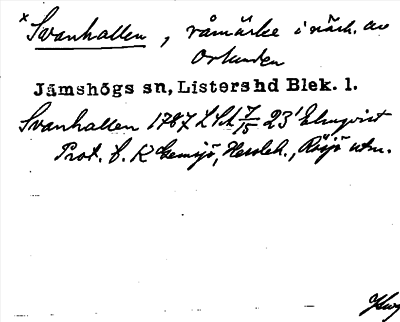 x Svanhallen, råmärke i närh. av
Orlunden
Jämshögs sn, Listershd Blek. l.
Svanhallen 1787 L Sk 7/15 23' Elmqvist
Prot. f. K Gemsjö, Hersleh., Rösjö utm.